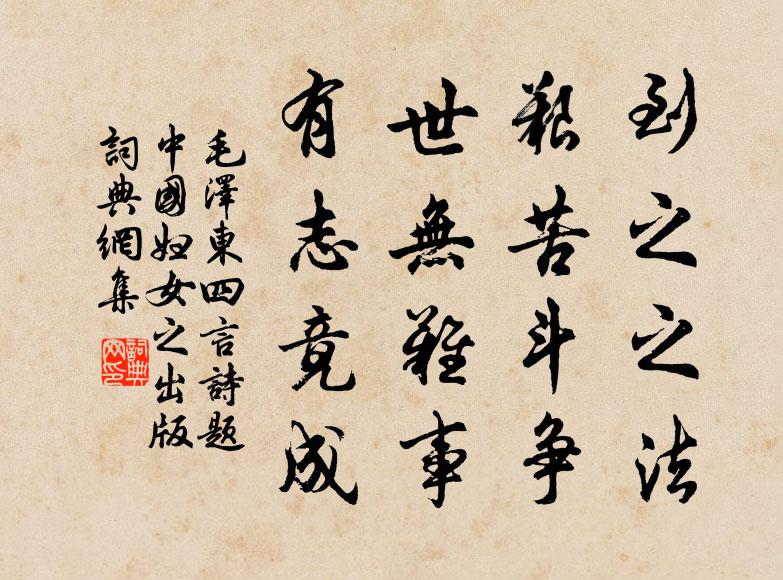 到之之法
艱苦斗争
世無難事
有志竟成
毛澤東四言詩題
中國妇女之出版
詞典網集
詞典
网印